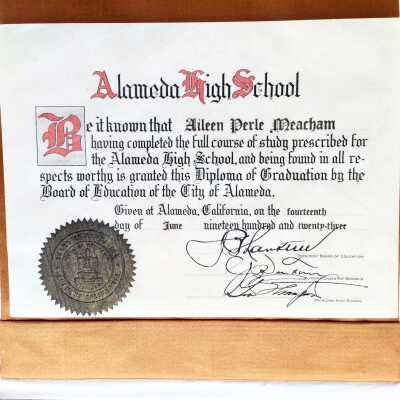 Alameda High School
Be it known that Aileen Perle Meacham
having completed the full course of study prescribed for
the Alameda High School, and being found in all re-
spects worthy is granted this Diploma of Graduation by the
Board of Education of the City of Alameda.
Given at Alameda, California, on the fourteenth
day of June nineteen hundred and twenty-three
PRESIDENT BOARD OF EDUCATION
PRINCIPAL HIGH SCHOOL